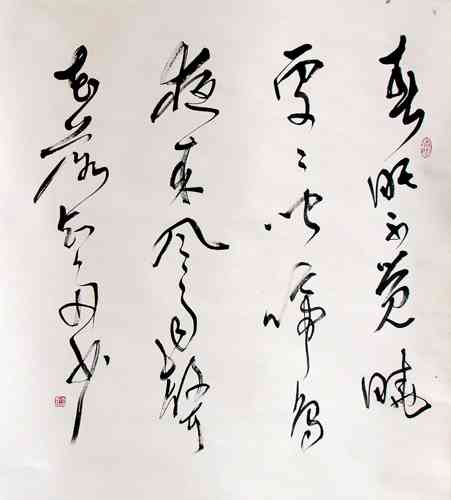 春眠不觉晓
处々闻啼鸟
夜来风雨声
花落知多少